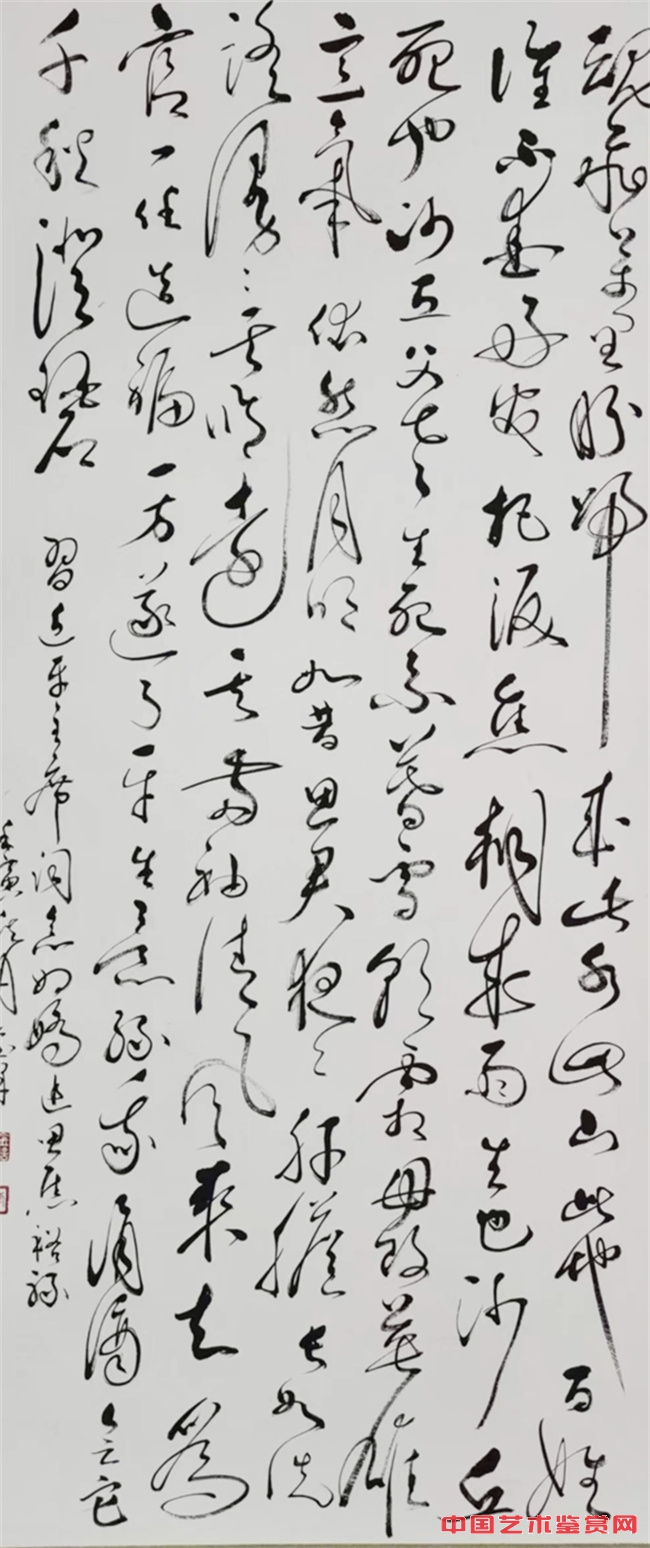 魂飛万里盼歸来此水此山此地百姓
谁不爱好官把泪焦桐成雨生也沙丘
死也沙丘父老生死系暮雪朝霜毋改英雄
意氣依然月明如昔思君夜〻肝膽长如洗
路漫〻其修遠矣两袖清风来去為
官一任造福一方遂了平生意绿我涓滴会它
千顷澄碧
習近平主席词念奴嬌追思焦裕禄
壬寅
中国艺术鉴赏网